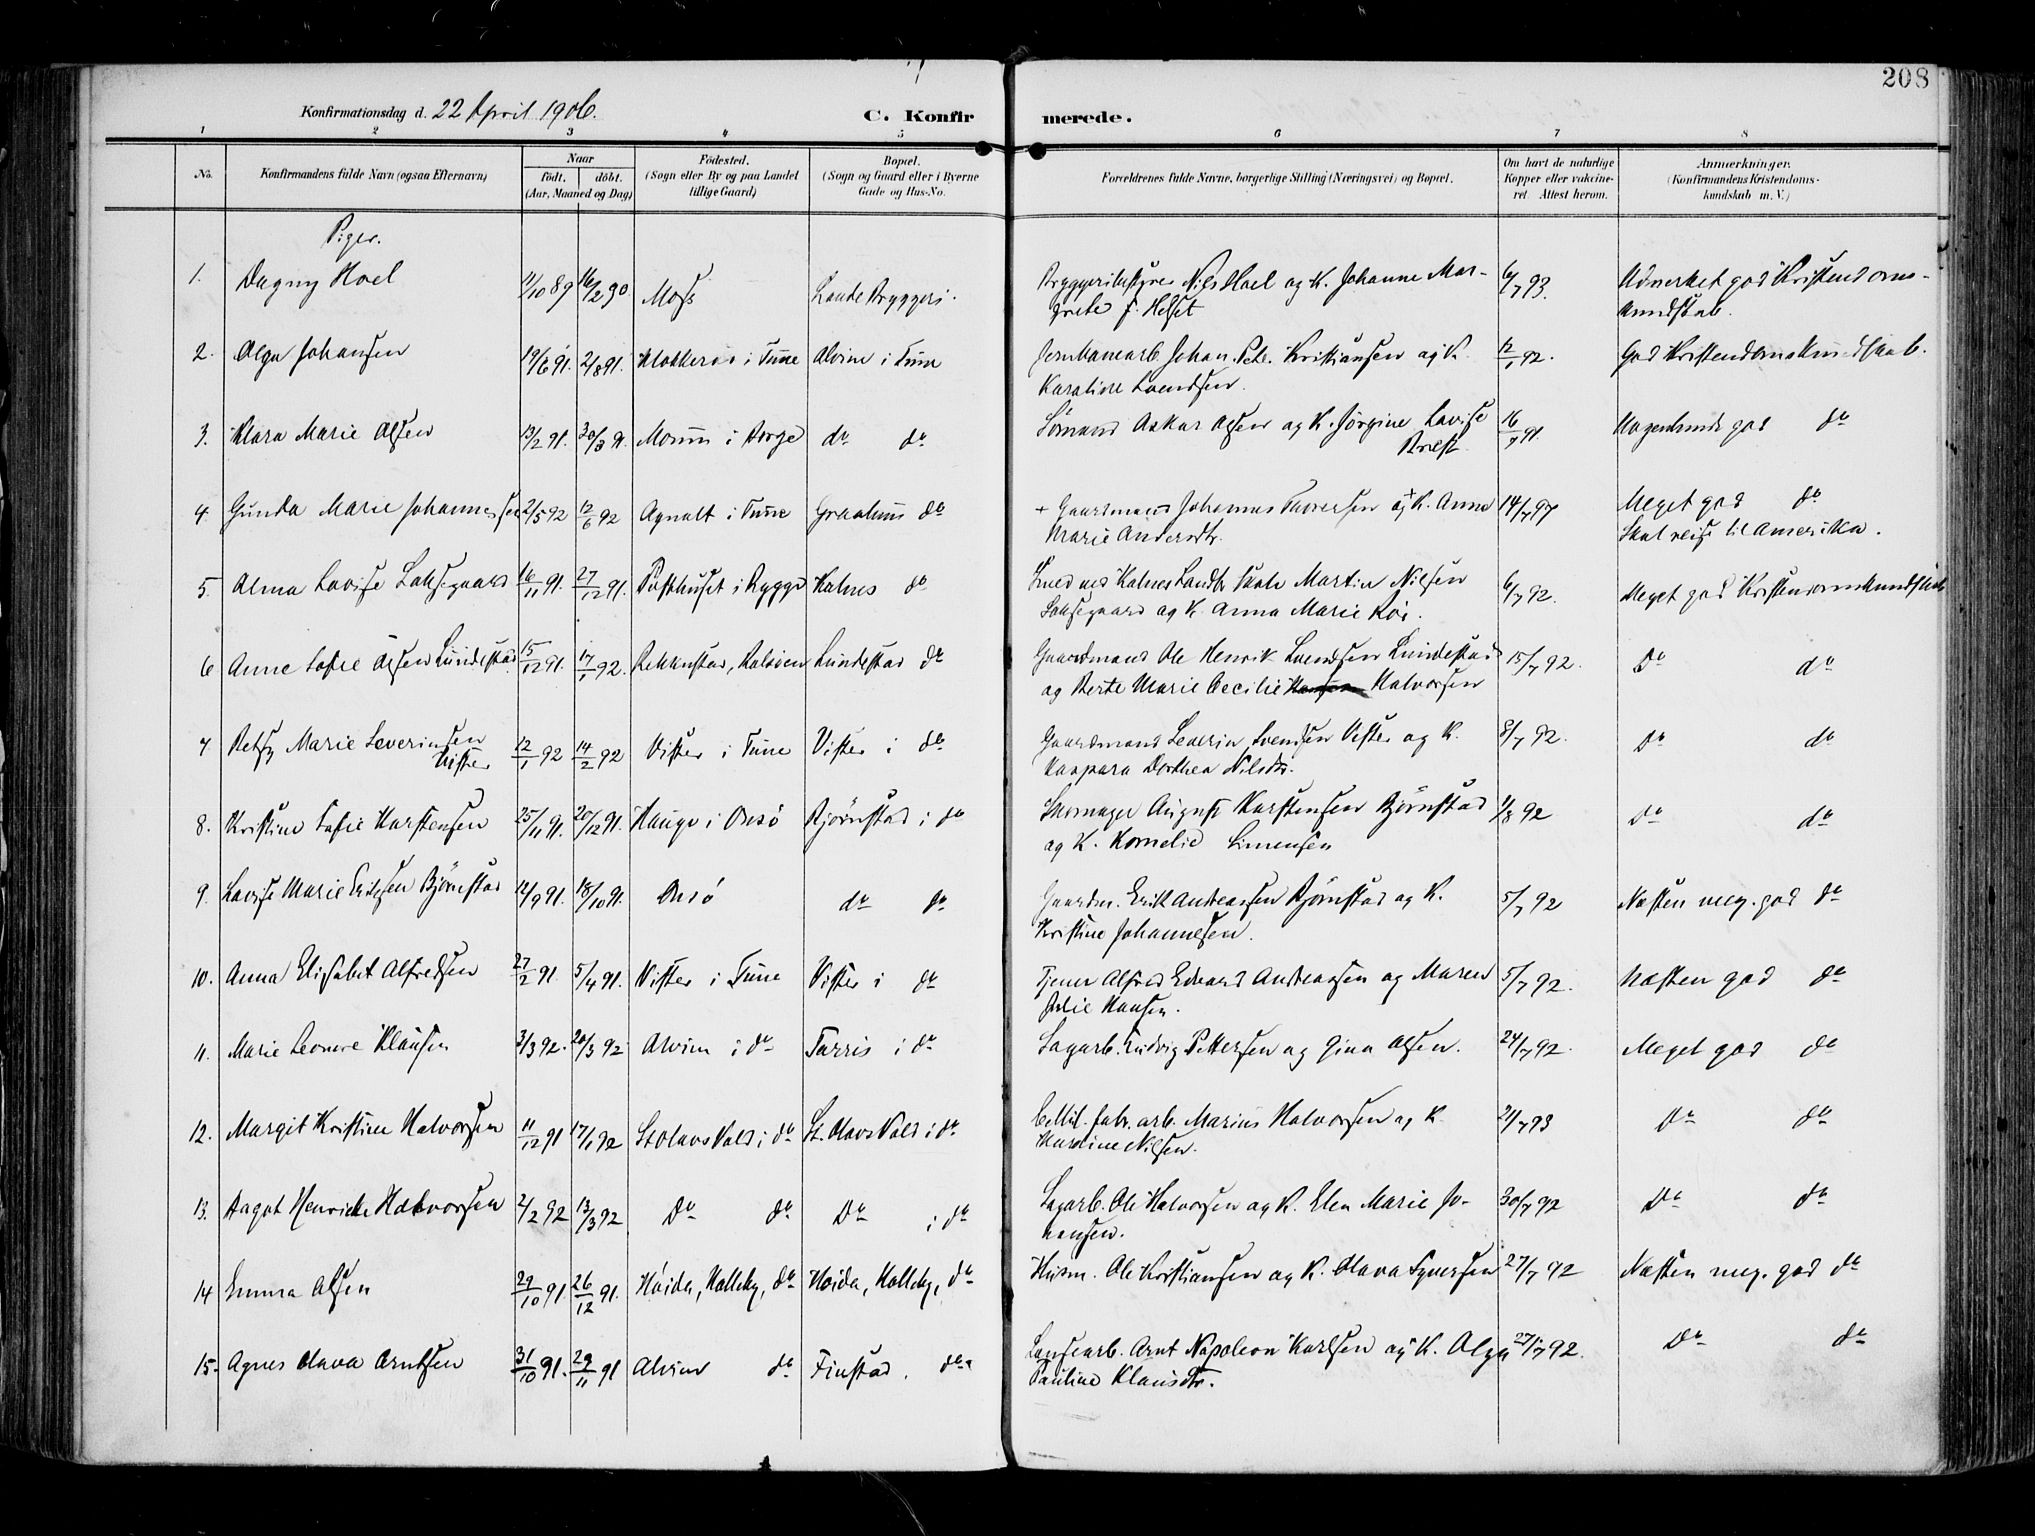 208
Konfirmationsdag d. 22 April 1906.
C. Konfirmerede.
1 2 3 4 5 6 7 8
No.
Konfirmandens fulde Navn (ogsaa Efternavn)
Naar
født. døbt.
(Aar, Maaned og Dag)
Fødested.
(Sogn eller By og paa Landet
tillige Gaard)
Bopæl.
(Sogn og Gaard eller i Byerne
Gade og Hus-No.
Forældrenes fulde Navne, borgerlige Stilling (Næringsvei) og Bopæl.
Om havt de naturlige
Kopper eller vakcine-
ret. Attest herom.
Anmærkninger.
(Konfirmandens Kristendoms-
kundskab m. V.)
Piger.
1. Dagny Hoel 11/10 89 16/2 90. Moss Lande Bryggeri. Bryggeribestyrer Nils Hoel og K. Johanne Mar- 6/7 93. Udmerket god Kristendoms-
grete f. Helset kundskab.
2. Olga Johansen 19/6 91. 2/8 91. Klokkeraa i Tune Alvim i Tune Jernbanearb. Johan Petr. Kristiansen og K. 12/1 92. God Kristendomskundskab.
Karoline Svendsen.
3. Klara Marie Olsen 13/2 91. 30/3 91. Moum i Borge do do Sømand Oskar Olsen og K. Jørgine Lovise 16/7 91. Nogenlunde god do
4. Gunda Marie Johannessen 2/5 92 12/6 92 Agnalt i Tune Graalum do + Gaardmand Johannes Iversen og + K. Anna 14/7 97 Meget god do
Marie Andersdtr. Skal reise til Amerika.
5. Alma Lovise Laksegaard 16/11 91. 27/12 91. Pæsthuset i Rygge Kalnes do Smed ved Kalnes Landbr. skole Martin Nilsen 6/7 92. Meget god Kristendomskundskab
Laksegaard og K. Anna Marie Moe.
6 Anne Sofie Olsen Lundestad 15/12 91. 17/1 92. Rekkustad, Rolsøen Lundestad do Gaardmand Ole Henrik Svendsen Lundestad 15/7 92. Do do
og Berte Marie Cecilie Halvorsen
7 Betsy Marie Severinsen 12/1 92 14/2 92 Vister i Tune Vister i do Gaardmand Severin Svendsen Vister og K. 8/7 92. Do do
Vister Kaspara Dorthea Nilsdtr.
8. Kristine Sofie Karstensen 25/11 91. 20/12 91. Hauge i Onsø Bjørnstad i do Skomager August Karstensen Bjørnstad 1/8 92 Do do
og K. Kornelie Simensen
9. Lovise Marie Eriksen Bjørnstad 12/9 91. 18/10 91. Onsø do do Gaardm. Erik Andreassen Bjørnstad og K. 5/7 92 Næsten meg. god do
Kristine Johannesen.
10. Anna Elisabet Alfredsen 27/2 91. 5/4 91. Vister i Tune Vister i do Tjener Alfred Edvard Andreassen og Maren 5/7 92. Næsten god do
Julie Hansen.
11. Marie Leonore Klausen 3/3 92. 20/3 92 Alvim i do Tarris i do Sagarb. Ludvig Pettersen og Gina Olsen. 24/7 92. Meget god do
12. Margit Kristine Halvorsen 11/12 91 17/1 92 St Olavs Vold i do St. Olavs Vold i do Cellul. fabr. arb. Marius Halvorsen og K. 21/7 93 Do do
Karoline Nilsen.
13. Aagot Henriette Halvorsen 2/2 92 13/3 92 Do do Do i do Sagarb. Ole Halvorsen og K. Elen Marie Jo- 30/7 92 Do do
hansen.
14 Emma Olsen 29/10 91. 26/12 91. Høida, Holleby, do Høida, Holleby, do Husm. Ole Kristiansen og K. Olava Syversen 27/7 92 Næsten meg. god do
15. Agnes Olava Arntsen 31/10 91. 29/11 91 Alvim do Finstad do Landsearb. Arnt Napoleon Karlsen og K. Olga 27/7 92. Do do
Pauline Klausdtr.